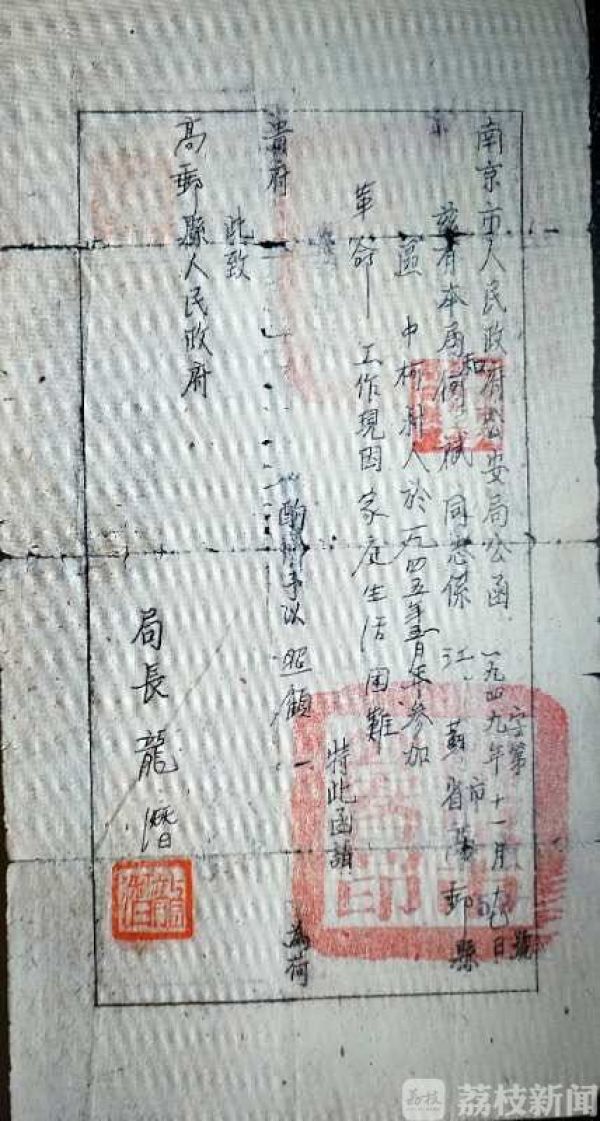 南京市人民政府公安局公函
字第 號
一九四九年十一月 日
茲有本局何 斌同志係江蘇省高郵縣
市
區中柯村人於一九四五年五月 參加
革命工作現因家庭生活困難
特此函請
貴府
酌情予以照顧
為荷
此致
高郵縣人民政府
局長龍潛
荔枝新闻